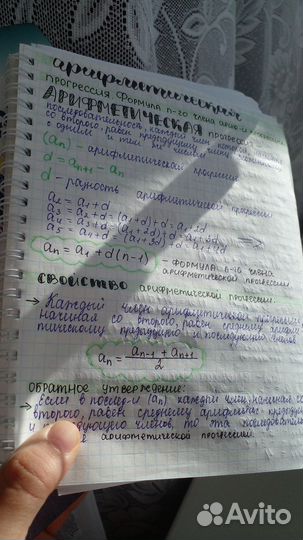 арифметическая
прогрессия формула n-го члена
АРИФМЕТИЧЕСКАЯ прогрессия
последовательность, каждый член которой
со второго, равен предыдущему
с одним и тем же числом
(aₙ) - арифметической прогрессии
d = aₙ₊₁ - aₙ
d - разность арифметической прогрессии
a₂ = a₁ + d
a₃ = a₂ + d = (a₁ + d) + d = a₁ + 2d
a₄ = a₃ + d = (a₁ + 2d) + d = a₁ + 3d
a₅ = a₄ + d = (a₁ + 3d) + d = a₁ + 4d
aₙ = a₁ + d(n-1) - формула n-го члена
арифметической прогрессии
свойство арифметической прогрессии.
→ Каждый член арифметической прогрессии,
начиная со второго, равен среднему арифме-
тическому предыдущего и последующего членов
aₙ = aₙ₋₁ + aₙ₊₁ / 2
Обратное утверждение:
→ Если в послед-и (aₙ) каждый член, начиная со
второго, равен среднему арифмет. предыдущ
и последующего членов, то эта последователь
арифметической прогрессии.
Avito